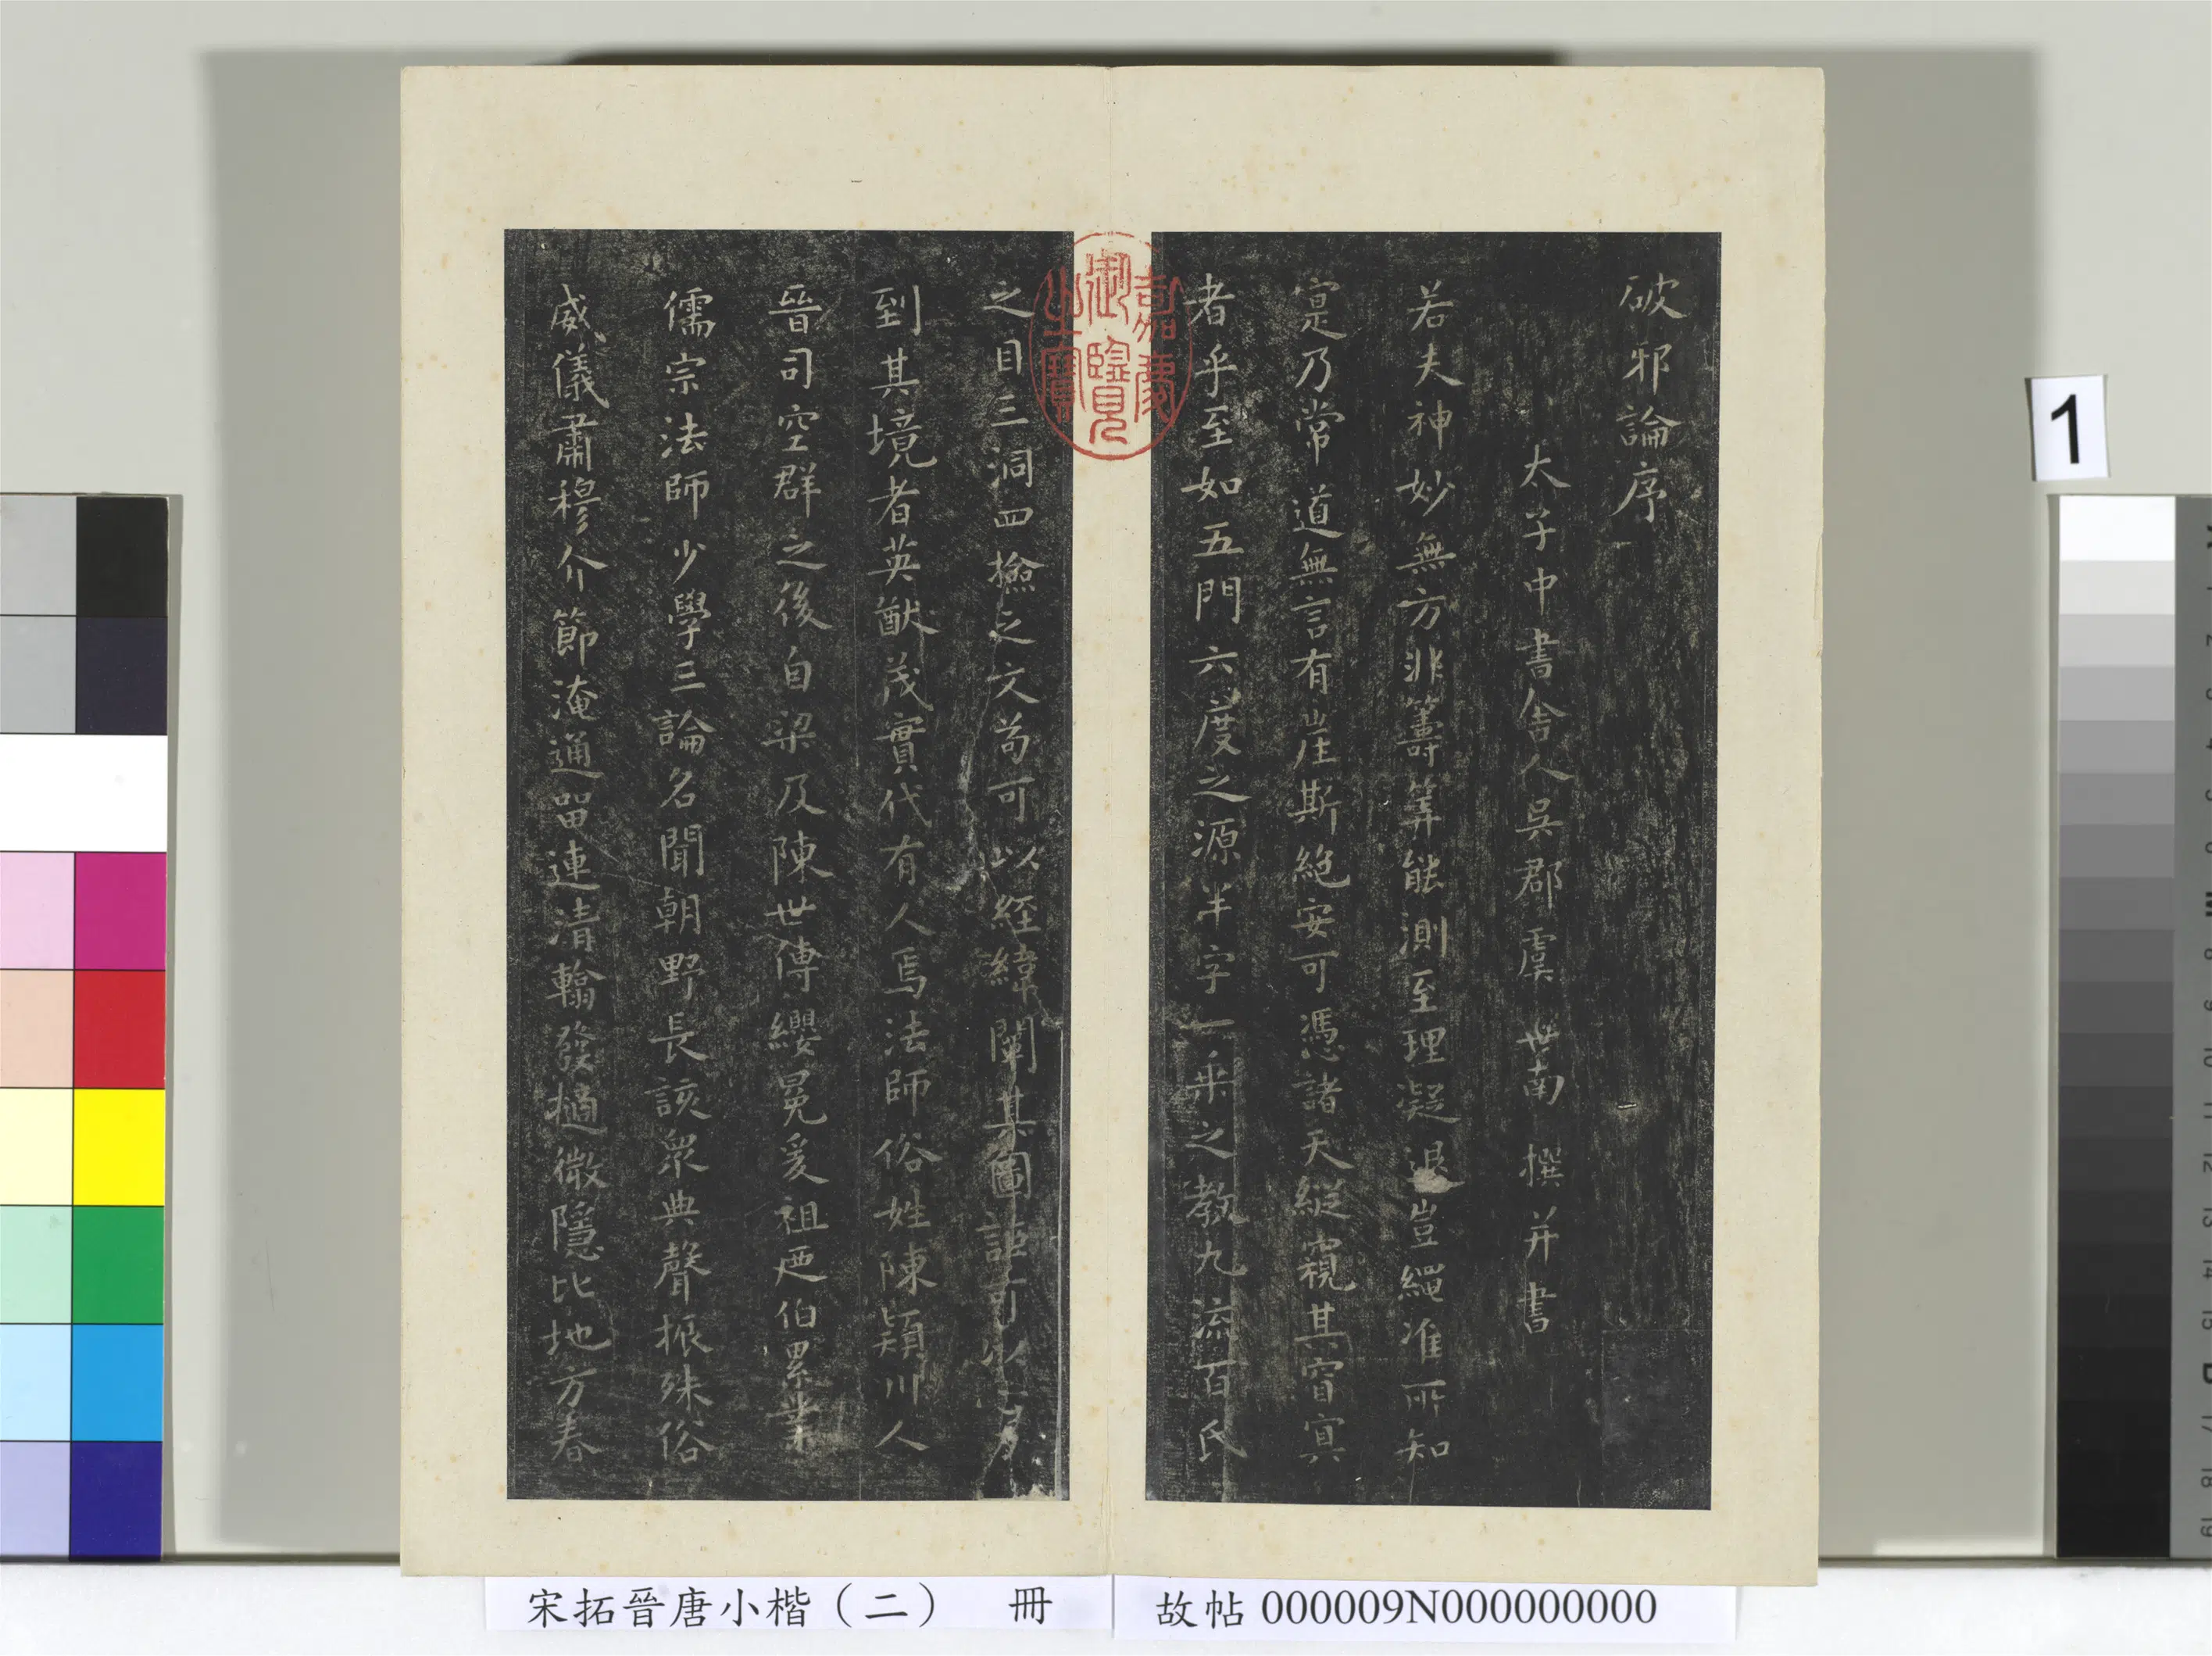 破邪論序
太子中書舍人吳郡虞世南撰并書
若夫神妙無方非籌筭能測至理凝邈豈繩准所知
寔乃常道無言有崖斯絶安可憑諸天縱窺其窅冥
者乎至如五門六度之源半字一乘之教九流百氏
之目三洞四檢之文苟可以經緯闡其圖詎可以力
到其境者英猷茂實代有人焉法師俗姓陳潁川人
晉司空群之後自梁及陳世傳纓冕爰祖及伯累業
儒宗法師少學三論名聞朝野長該衆典聲振殊俗
威儀肅穆介節淹通留連清翰發擿微隱比地方春
嘉慶
御覽
之寶
宋拓晉唐小楷（二） 冊
故帖 000009N000000000
1